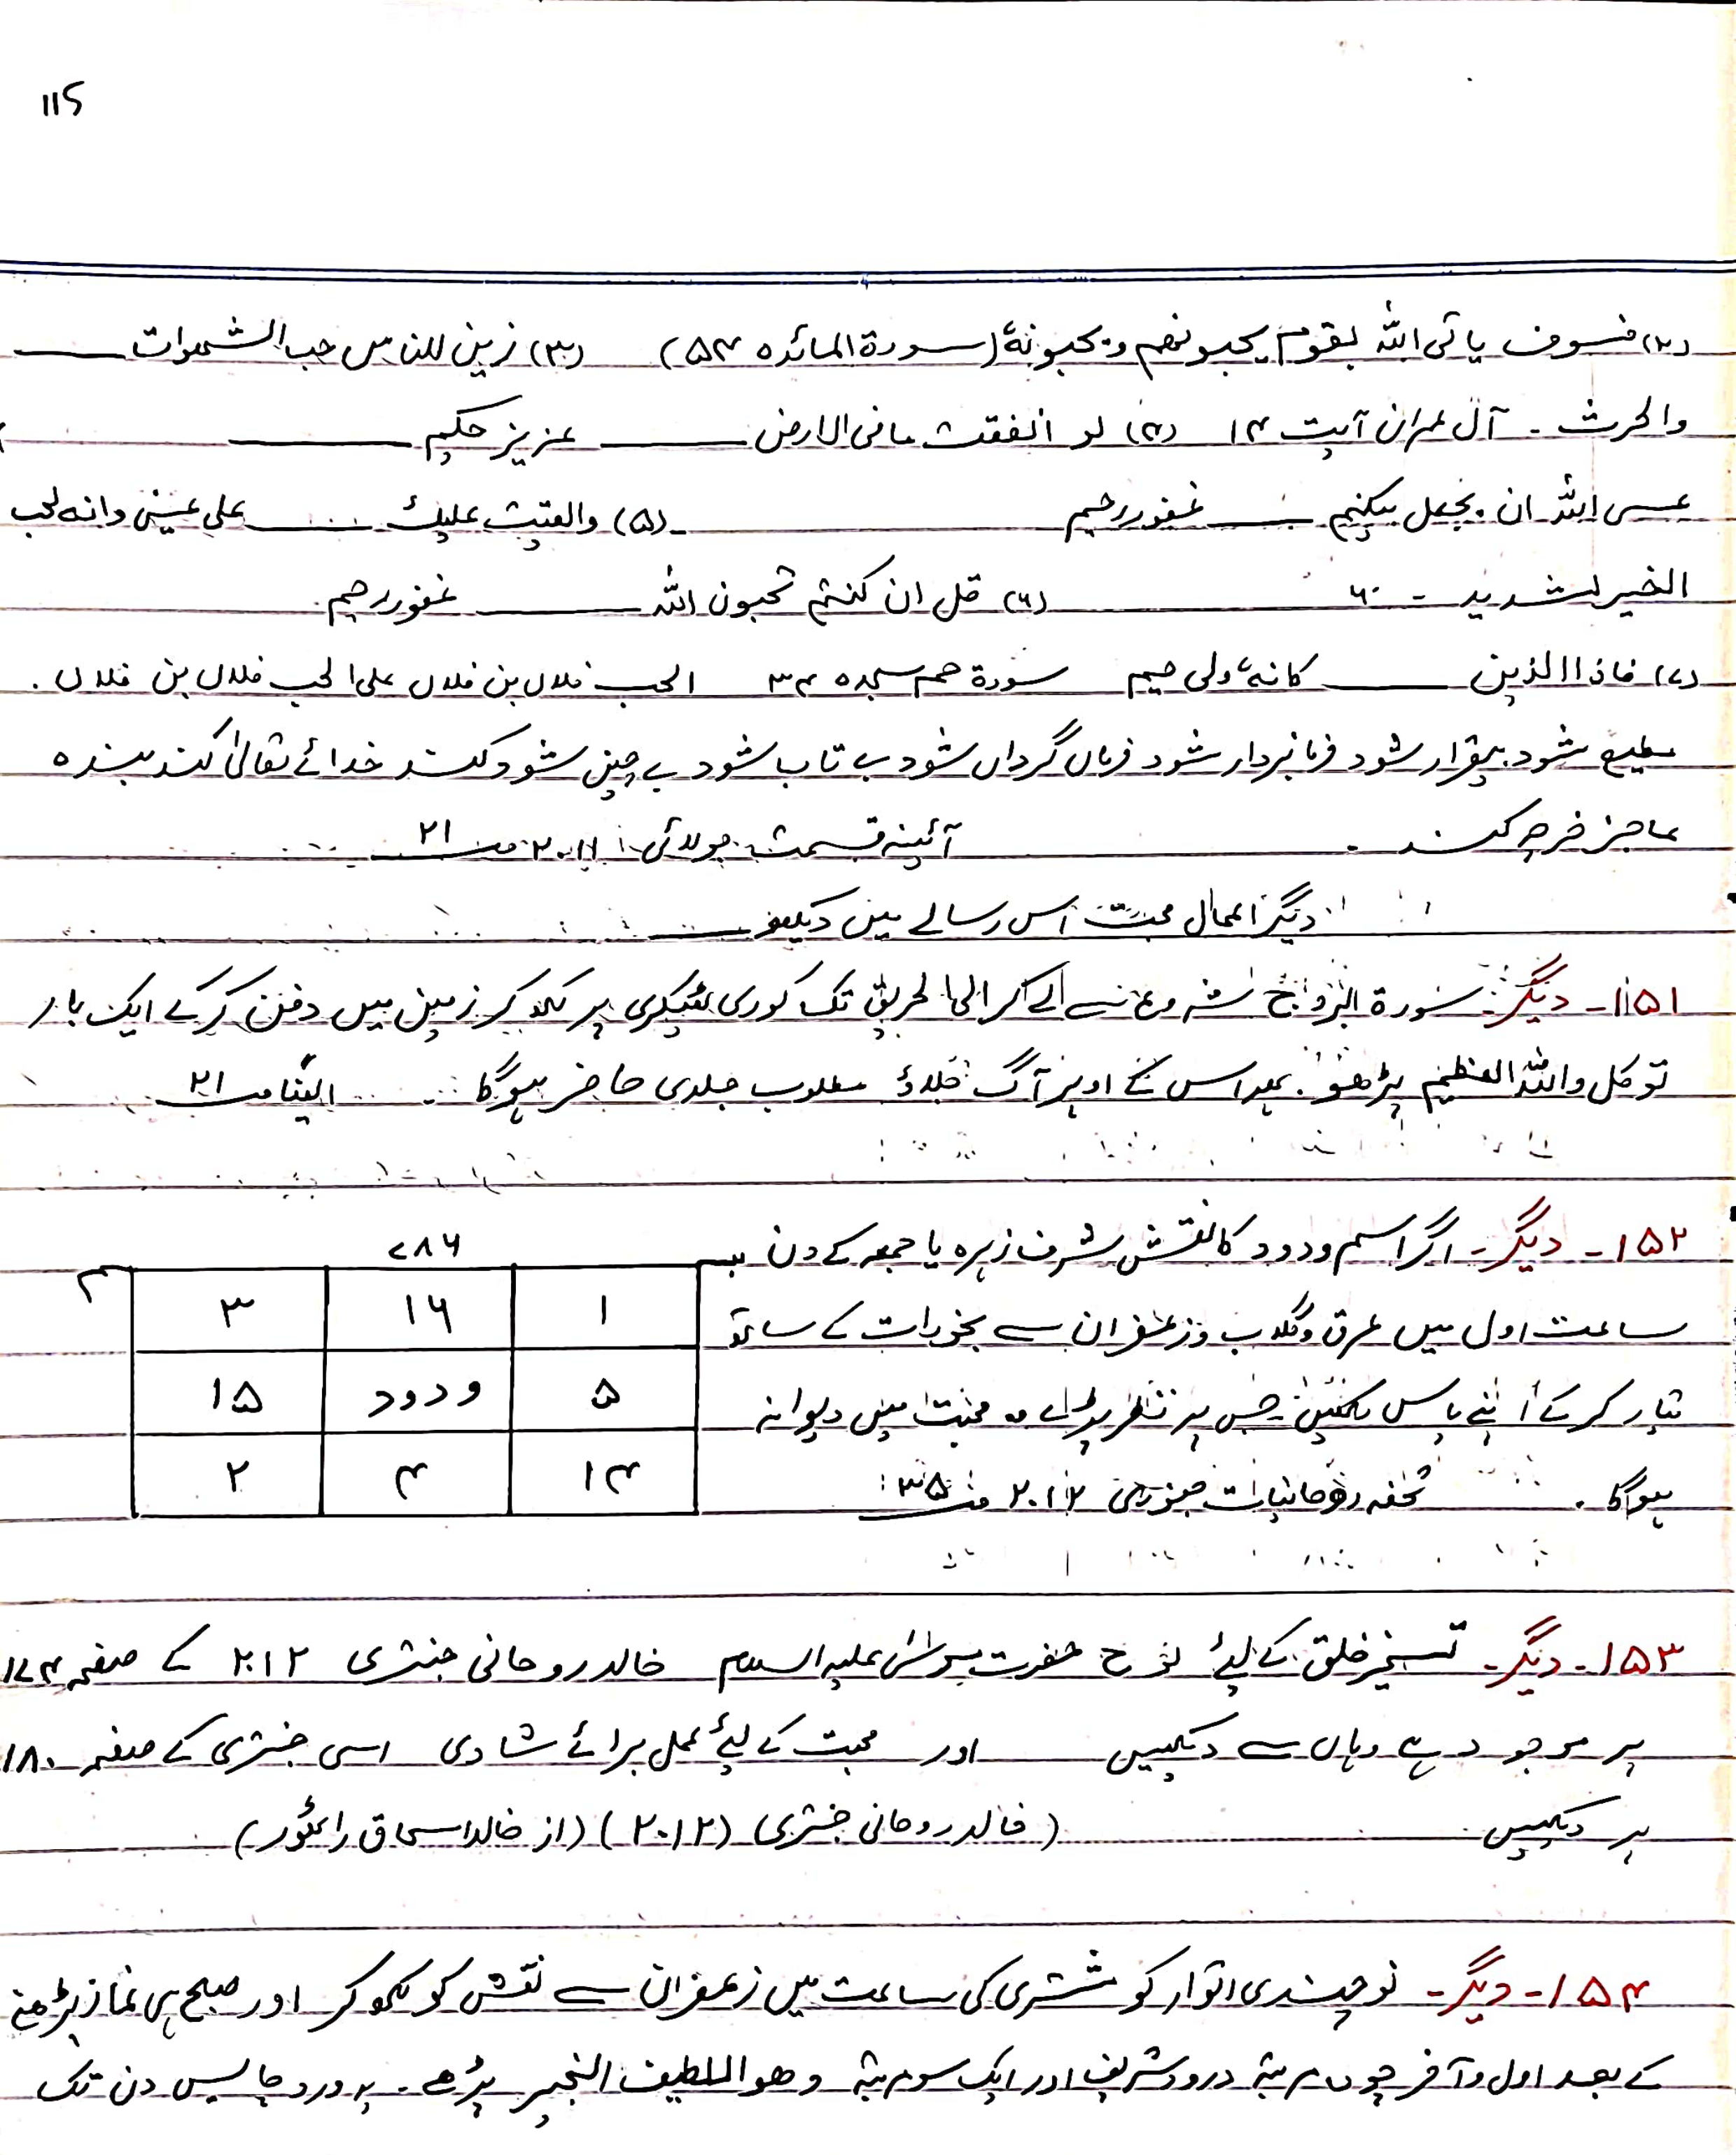 115
(۲) فسوف یاتی اللہ بقوم یحبونھم ویحبونہٗ (سورۃ المائدہ ۵۴) (۳) زین للناس حب الشھوات ——
والحرث ۔ آل عمران آیت ۱۴ (۴) لو انفقت مافی الارض —— عزیز حکیم ——
عسی اللہ ان یجعل بینکم —— غفور رحیم ۔ (۵) والقیت علیک —— علی عینی وانہ لحب
الخیر لشدید ۔ ۶۰ (۶) قل ان کنتم تحبون اللہ —— غفور رحیم ۔
(۷) فاذا الذین —— کانہٗ ولی حمیم سورۃ حم سجدہ ۳۴ الحب فلاں بن فلاں علی الحب فلاں بن فلاں ۔
مطیع شود بیقرار شود فرمانبردار شود فرماں گرداں شود بے تاب شود بے چین شود کند خدائے تعالیٰ کند بندہ
عاجز خرچ کند ۔ آئینہ قسمت جولائی ۲۰۱۱ صـ ۲۱
دیگر اعمال محبت اس رسالے میں دیکھو ——
۱۵۱ - دیگر ۔ سورۃ البروج شروع سے لے کر الحریق تک کوری ٹھیکری پر لکھ کر زمین میں دفن کر کے ایک بار
توکل واللہ العظیم پڑھو ۔ بعد اس کے اوپر آگ جلاؤ مطلوب جلدی حاضر ہوگا ۔ ایضاً صـ ۲۱
۱۵۲ - دیگر ۔ اگر اسم ودود کا نقش شرف زہرہ یا جمعہ کے دن
ساعت اول میں عرق وگلاب وزعفران سے بخورات کے ساتھ
تیار کر کے اپنے پاس رکھیں ۔ جس پر نظر پڑے وہ محبت میں دیوانہ
ہوگا ۔ تحفہ روحانیات جنوری ۲۰۱۲ صـ ۳۵
۷۸۶
۳ ۱۶ ۱
۱۵ ودود ۵
۲ ۴ ۱۴
۱۵۳ - دیگر ۔ تسخیر خلق کے لیئے لوح حضرت علیہ السلام خالد روحانی جنتری ۲۰۱۲ کے صفحہ ۱۷۴
پر موجود ہے وہاں سے دیکھیں اور محبت کے لیئے عمل برائے شادی اسی جنتری کے صفحہ ۱۸۰
پر دیکھیں ۔ (خالد روحانی جنتری (۲۰۱۲) (از خالد اسحاق راٹھور)
۱۵۴ - دیگر ۔ نوچندی اتوار کو مشتری کی ساعت میں زعفران سے نقش کو لکھ کر اور صبح ہی نماز پڑھنے
کے بعد اول وآخر مرتبہ درود شریف اور ایک سو مرتبہ وھو اللطیف الخبیر پڑھے ۔ یہ ورد چالیس دن تک